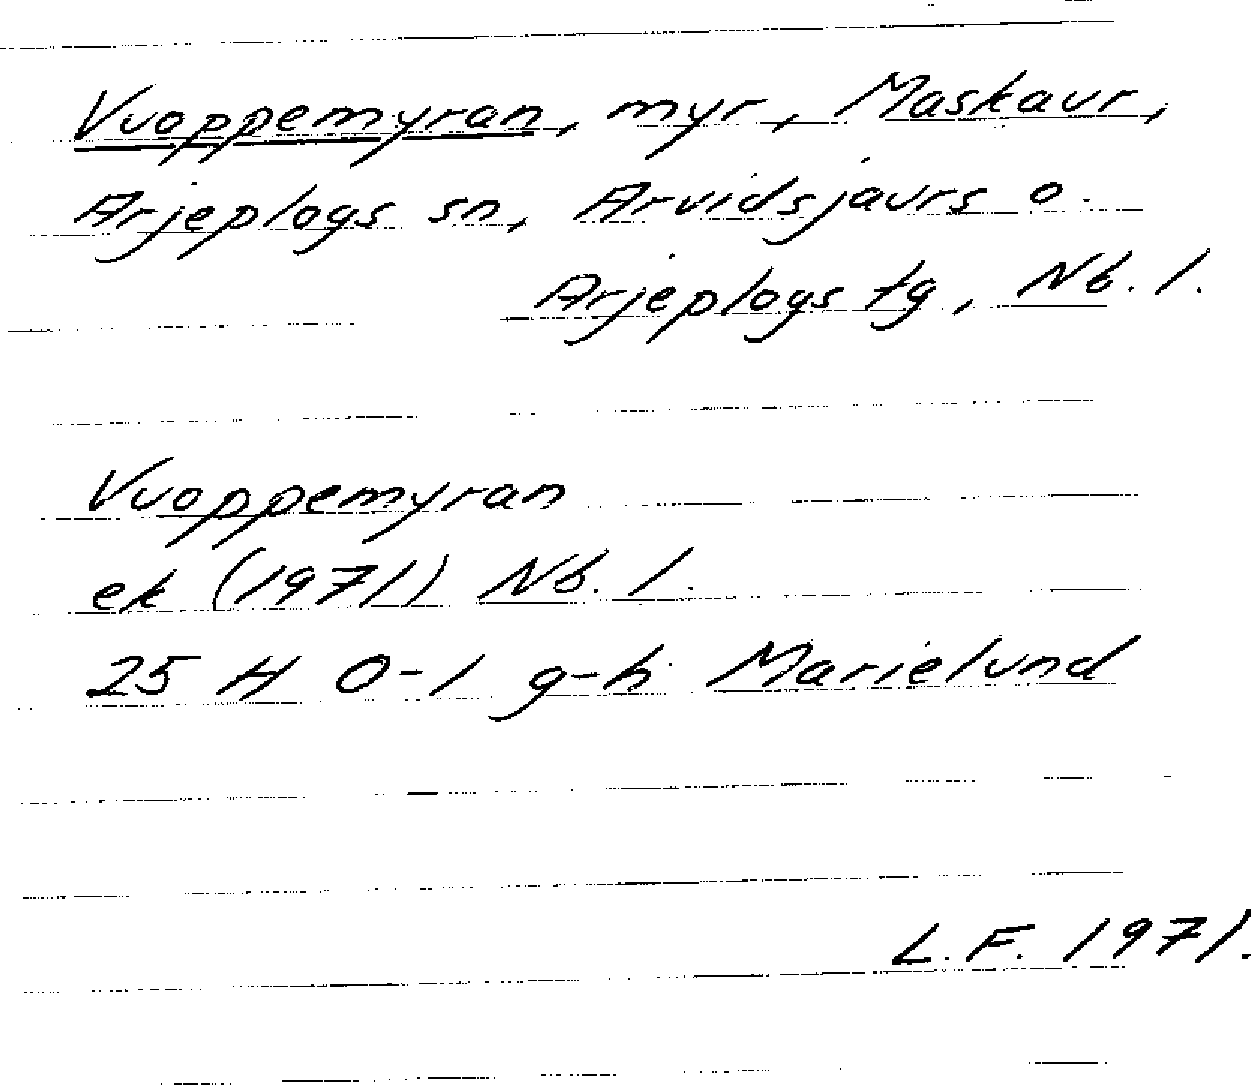 Vuoppemyran, myr, Maskaur,
Arjeplogs sn, Arvidsjaurs o.
Arjeplogs tg, Nb. l.
Vuoppemyran
ek (1971) Nb. l.
25 H 0-1 g-h Marielund
L.F. 1971.